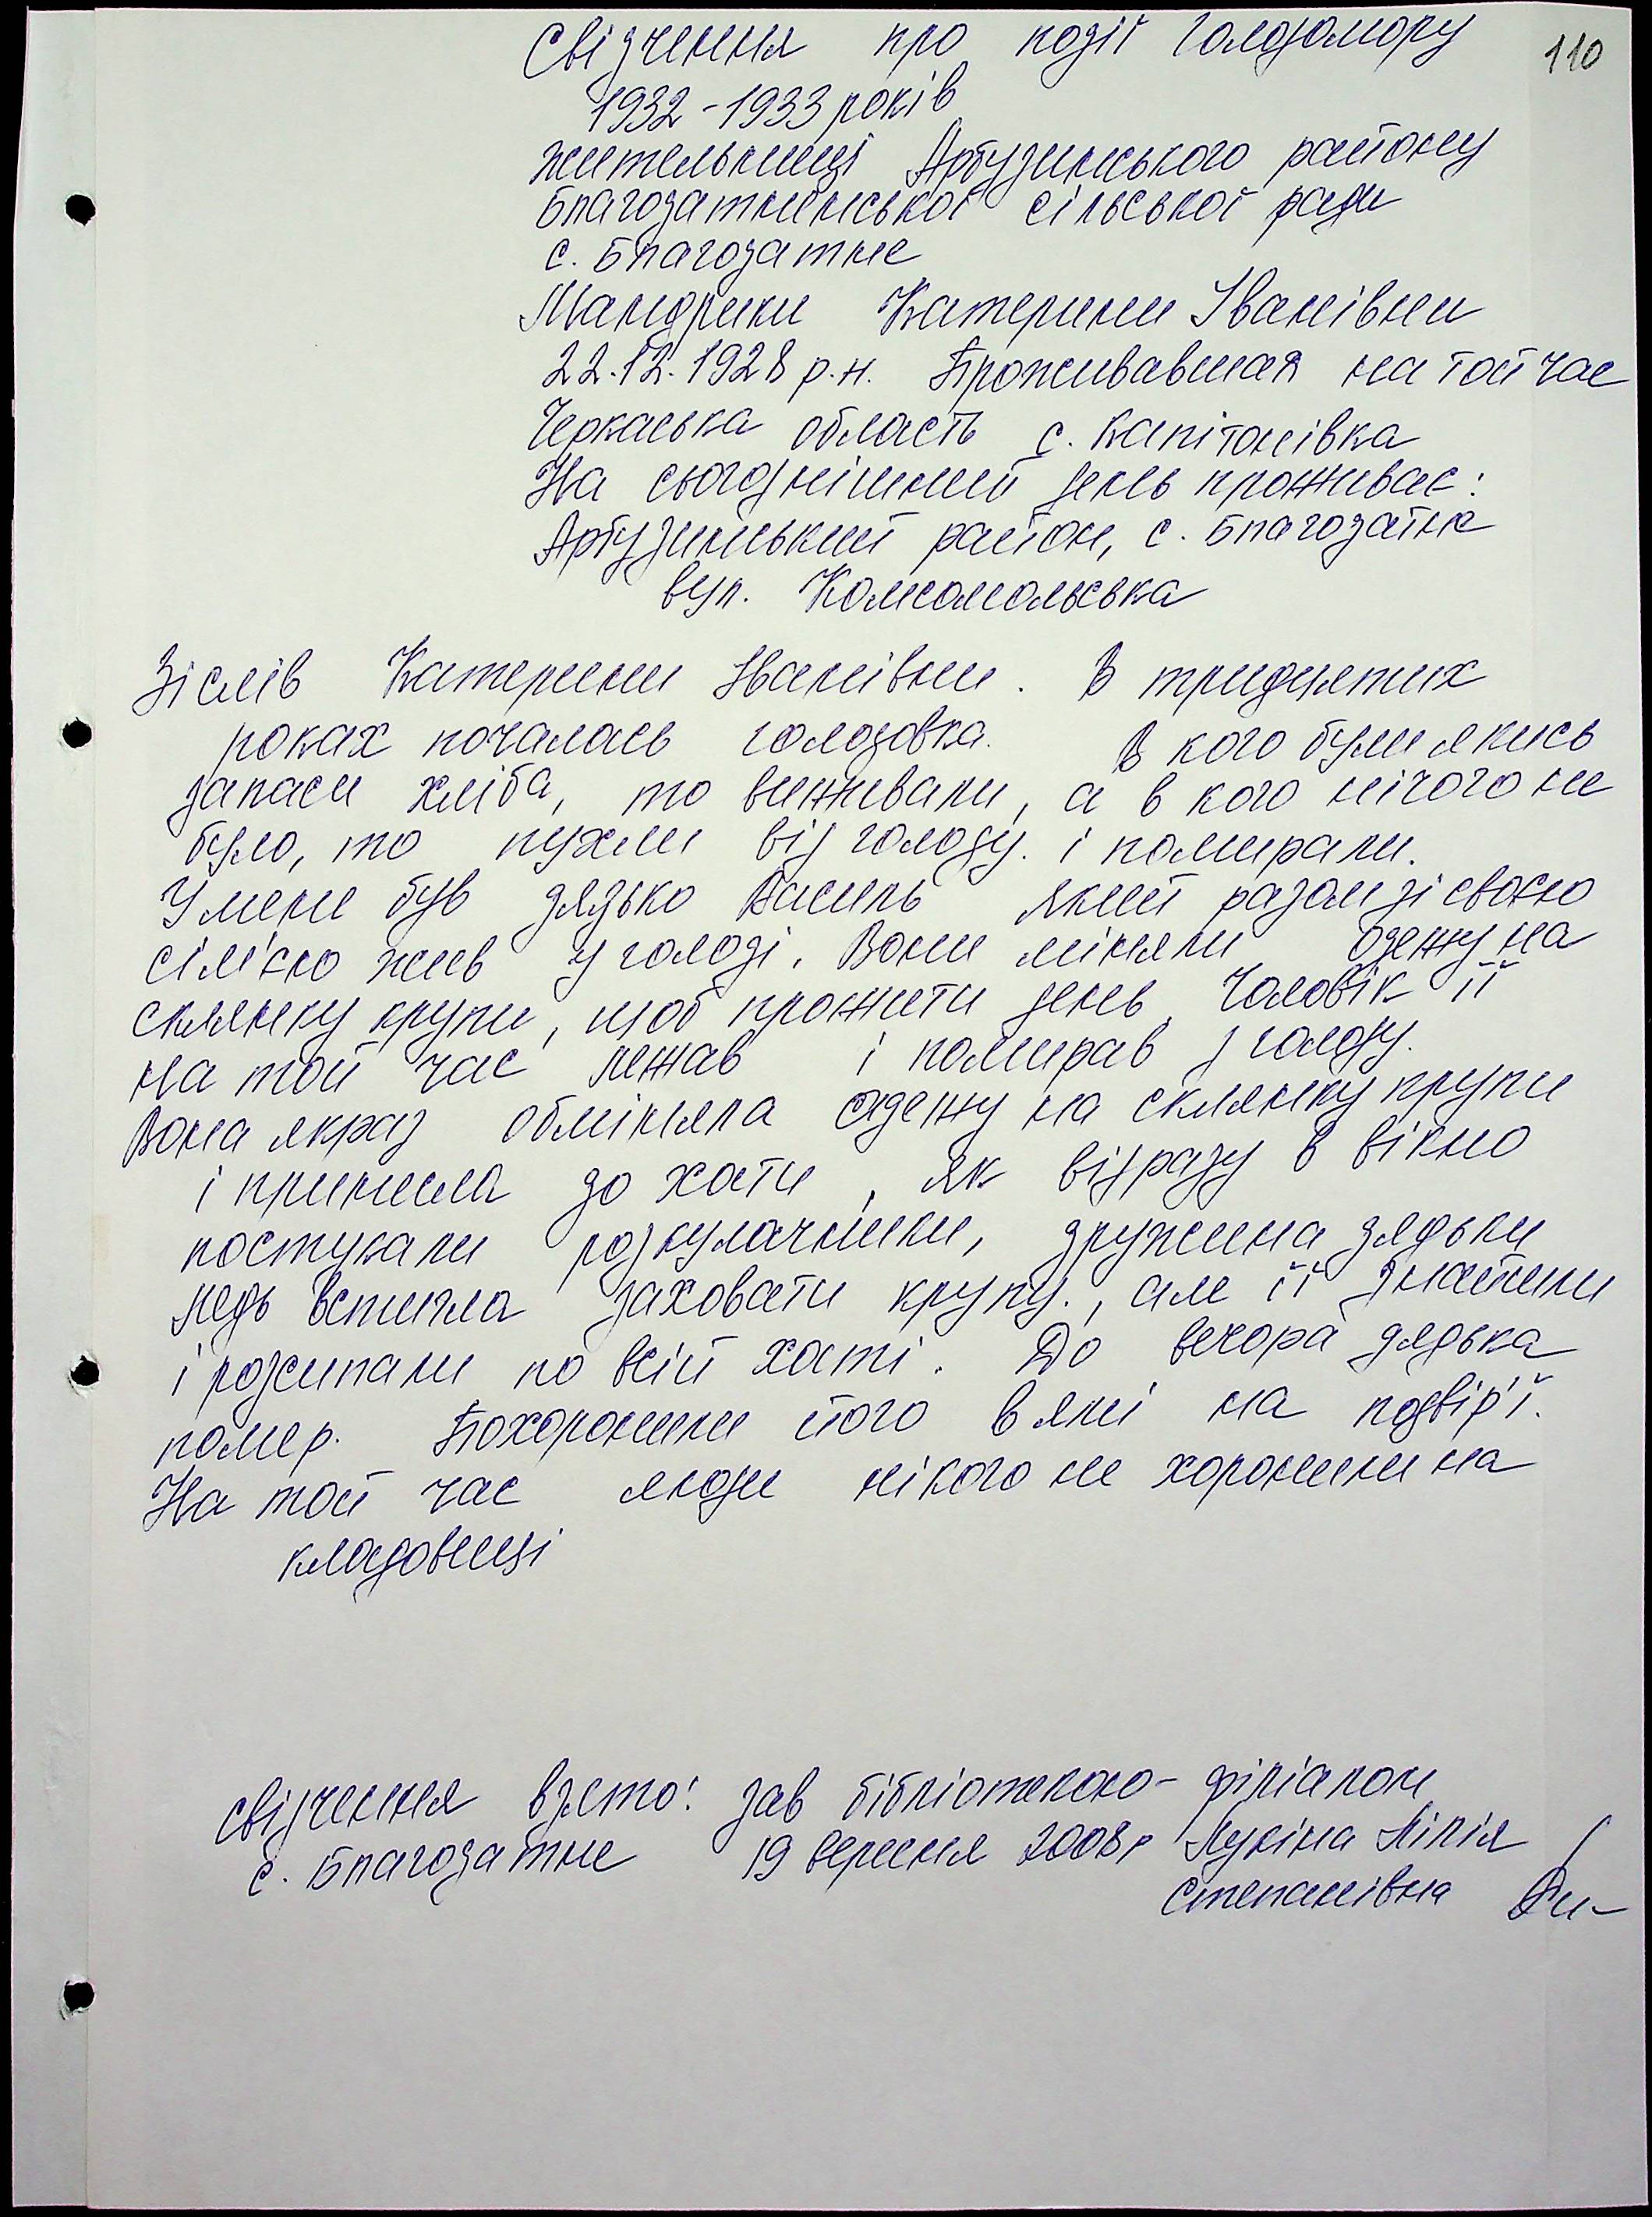 Свідчення про події голодомору
110
1932-1933 років
жительниці Арбузинського району
Благодатненської сільської ради
с. Благодатне
Мандрики Катерини Іванівни
22.12.1928 р.н. Проживавшая на той час
Черкаська область с. Капітанівка
На сьогоднішний день проживає:
Арбузинський район, с. Благодатне
вул. Комсомольська
Зі слів Катерини Іванівни. В тридцятих
роках почалась голодовка. В кого були якись
запаси хліба, то виживали, а в кого нічого не
було, то пухли від голоду. і помирали.
У мене був дядько Василь який разом зі своєю
сім'єю жив у голоді. Вони міняли одежу на
склянку крупи, щоб прожити день. Чоловік її
на той час лежав і помирав з голоду.
Вона якраз обміняла одежу на склянку крупи
і принесла до хати, як відразу в вікно
постукали розкулачники, дружина дядьки
ледь встигла заховати крупу., але її знайшли
і розсипали по всій хаті. До вечора дядька
помер. Похоронили його в ямі на подвір'ї.
На той час люди нікого не хоронили на
кладовищі
свідчення взято: зав бібліотекою-філіалом
с. Благодатне 19 вересня 2008р Лукіна Лілія
Степанівна